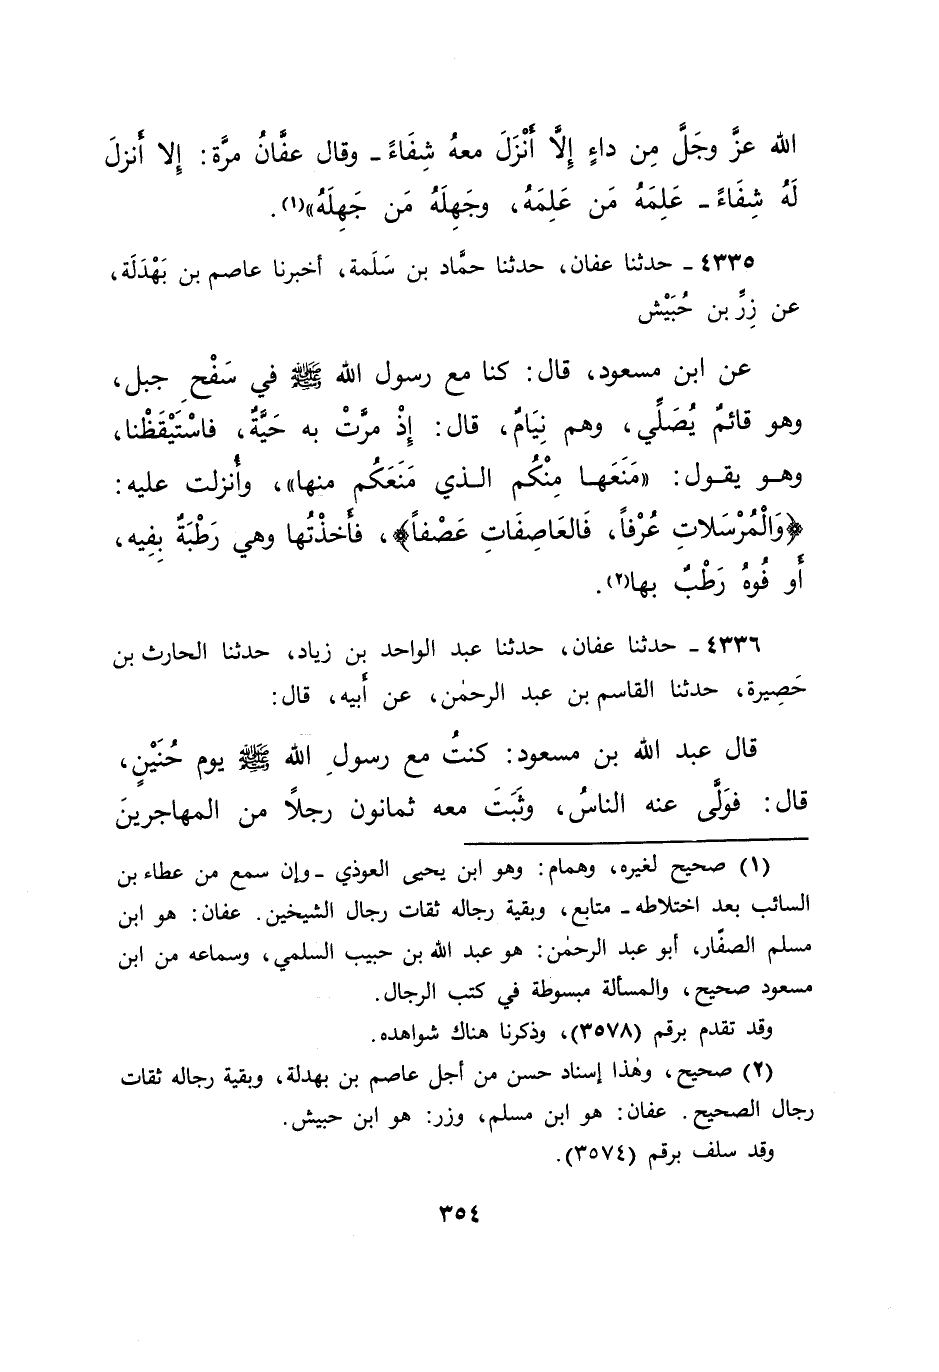 الله عزَّ وجَلَّ مِن داءٍ إِلَّا أَنْزَلَ معهُ شِفَاءً ـ وقال عفَّانُ مرَّة: إلا أَنزلَ
لَهُ شِفَاءً ـ عَلِمَهُ مَن عَلِمَهُ، وجَهِلَهُ مَن جَهِلَهُ»(١).
٤٣٣٥ ـ حدثنا عفان، حدثنا حمَّاد بن سَلَمة، أخبرنا عاصم بن بَهْدَلَة،
عن زِرِّ بن حُبَيْش
عن ابن مسعود، قال: كنا مع رسول الله ﷺ في سَفْحِ جبل،
وهو قائمٌ يُصَلِّي، وهم نِيَامٌ، قال: إِذْ مرَّتْ به حَيَّةٌ، فاسْتَيْقَظْنا،
وهـو يقـول: «مَنَعَهـا مِنْكُم الـذي مَنَعَكُم منها»، وأُنزلت عليه:
﴿وَالْمُرْسَلاتِ عُرْفاً، فَالعَاصِفَاتِ عَصْفاً﴾، فأَخذْتُها وهي رَطْبَةٌ بِفِيه،
أَو فُوهُ رَطْبٌ بها(٢).
٤٣٣٦ ـ حدثنا عفان، حدثنا عبد الواحد بن زياد، حدثنا الحارث بن
حَصِيرة، حدثنا القاسم بن عبد الرحمٰن، عن أَبيه، قال:
قال عبد الله بن مسعود: كنتُ مع رسولِ الله ﷺ يوم حُنَيْنٍ،
قال: فوَلَّى عنه الناسُ، وثَبَتَ معه ثمانون رجلًا من المهاجرينَ
(١) صحيح لغيره، وهمام: وهو ابن يحيى العوذي ـ وإن سمع من عطاء بن
السائب بعد اختلاطه ـ متابع، وبقية رجاله ثقات رجال الشيخين. عفان: هو ابن
مسلم الصفّار، أبو عبد الرحمٰن: هو عبد الله بن حبيب السلمي، وسماعه من ابن
مسعود صحيح، والمسألة مبسوطة في كتب الرجال.
وقد تقدم برقم (٣٥٧٨)، وذكرنا هناك شواهده.
(٢) صحيح، وهٰذا إسناد حسن من أجل عاصم بن بهدلة، وبقية رجاله ثقات
رجال الصحيح. عفان: هو ابن مسلم، وزر: هو ابن حبيش.
وقد سلف برقم (٣٥٧٤).
٣٥٤